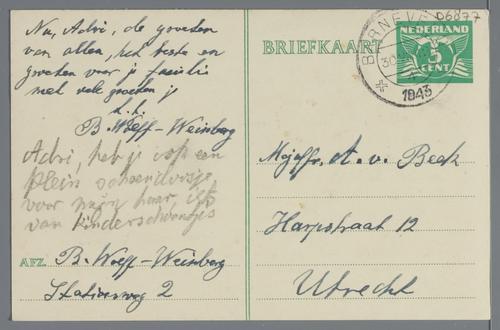 Nu, Adri, de groeten
van allen, het beste en
groeten voor je familie
met vele groeten je
B. Wolff-Weinberg
Adri, heb je ook een
klein schoen
voor mijn haar, iets
van kinderschoentjes
AFZ. B. Wolff-Weinberg
Stationsweg 2
BRIEFKAART
BARNEVE
30
1943
D6877
NEDERLAND
5
CENT
Mejuffr. A. v. Beek
Harpstraat 12
Utrecht